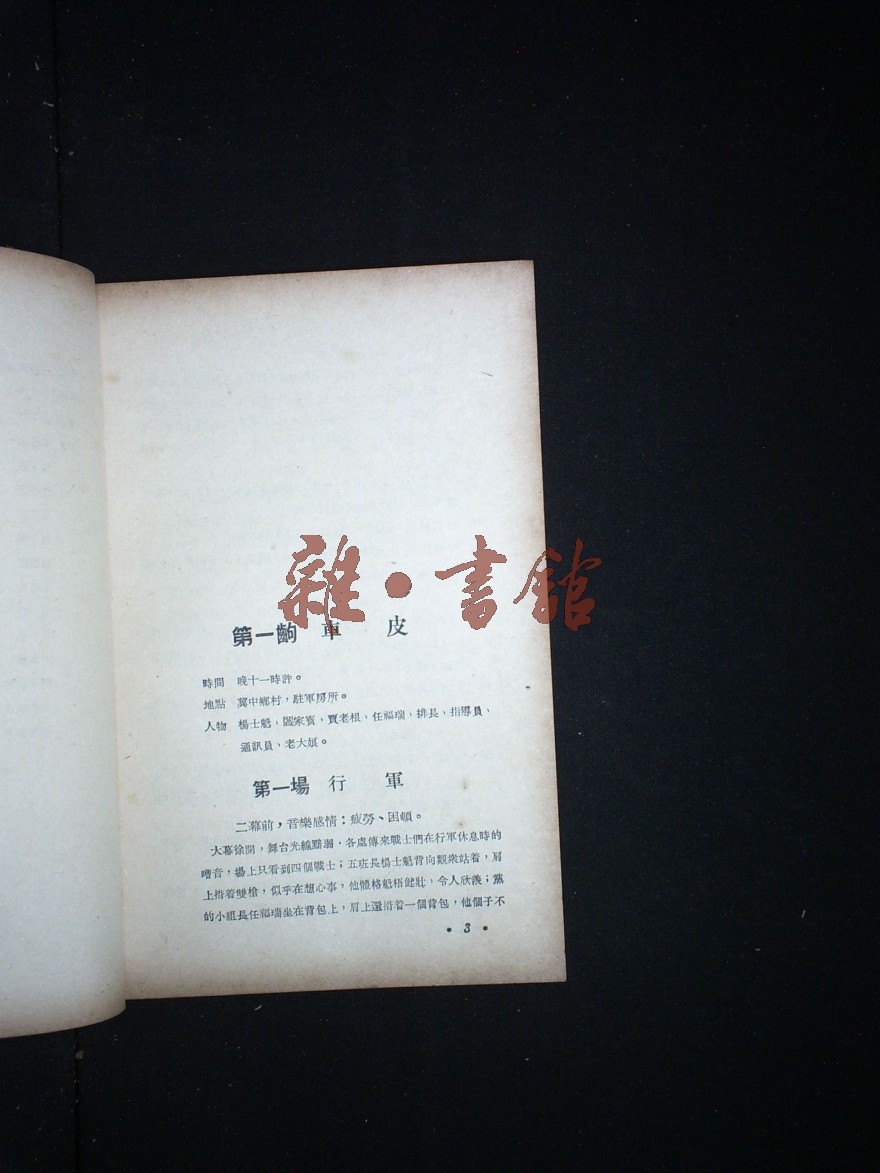 雜·書館
第一齣 車 皮
時間 晚十一時許。
地點 冀中鄉村，駐軍房所。
人物 楊士魁、閻家賓、賈老根、任福瑞、排長、指導員、
通訊員、老大娘。
第一場 行 軍
二幕前，音樂感情：疲勞、困頓。
大幕徐開，舞台光線黯弱，各處傳來戰士們在行軍休息時的
嘈音，場上只看到四個戰士；五班長楊士魁背向觀衆站着，肩
上揹着雙槍，似乎在想心事，他體格魁梧健壯，令人欣羨；黨
的小組長任福瑞坐在背包上，肩上還揹着一個背包，他個子不
• 3 •